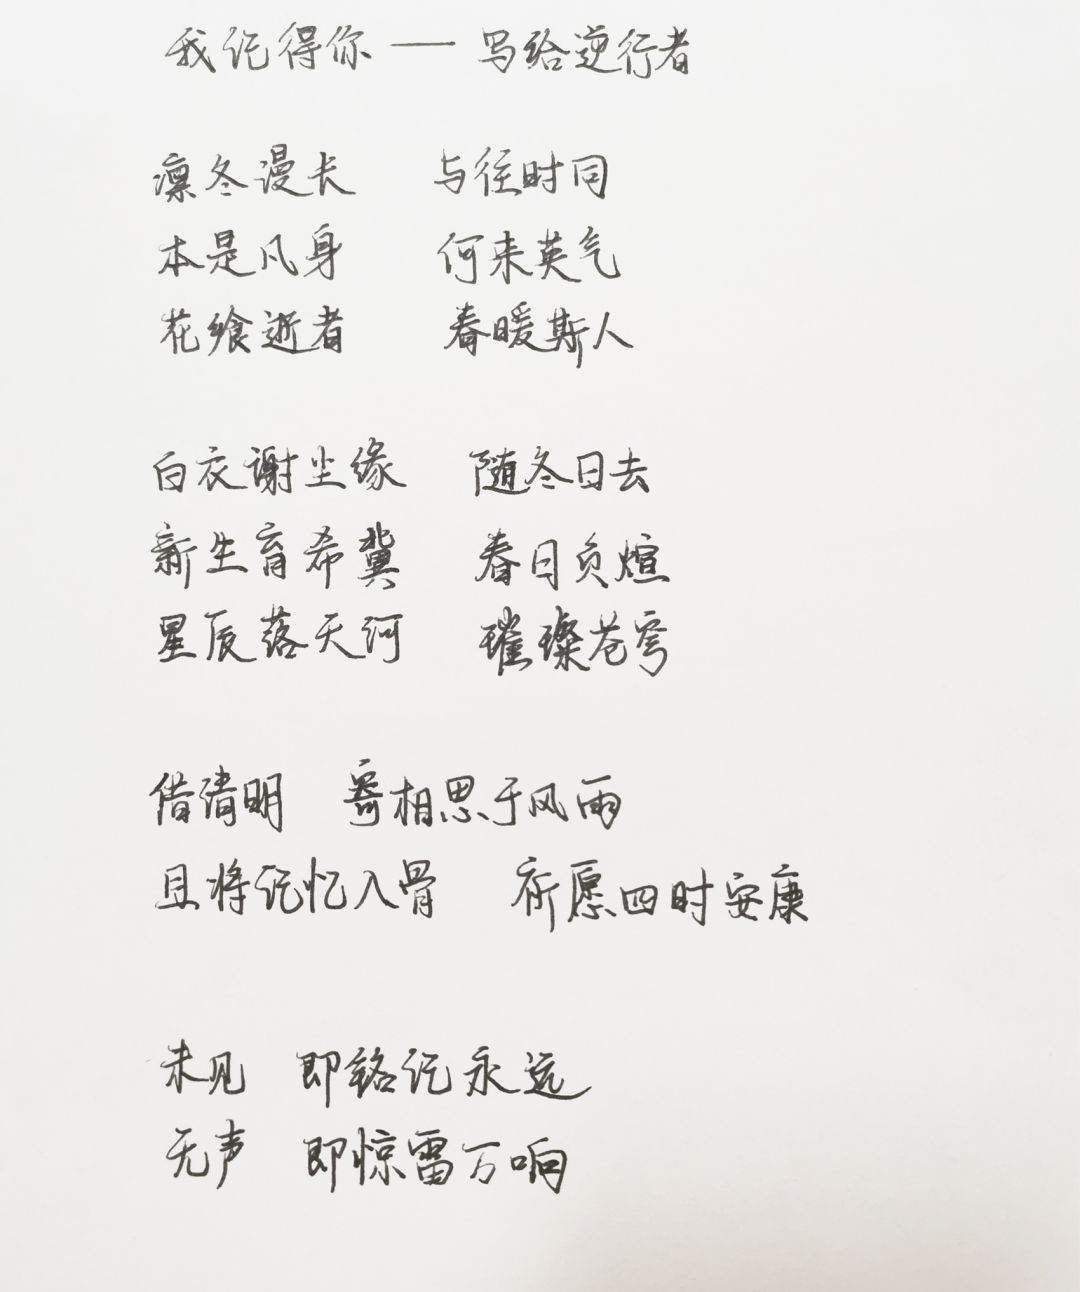 我记得你 —— 写给逆行者
凛冬漫长 与往时同
本是凡身 何来英气
花飨逝者 春暖斯人
白衣谢尘缘 随冬日去
新生育希冀 春日负煊
星辰落天河 璀璨苍穹
借清明 寄相思于风雨
且将记忆入骨 祈愿四时安康
未见 即铭记永远
无声 即惊雷万响